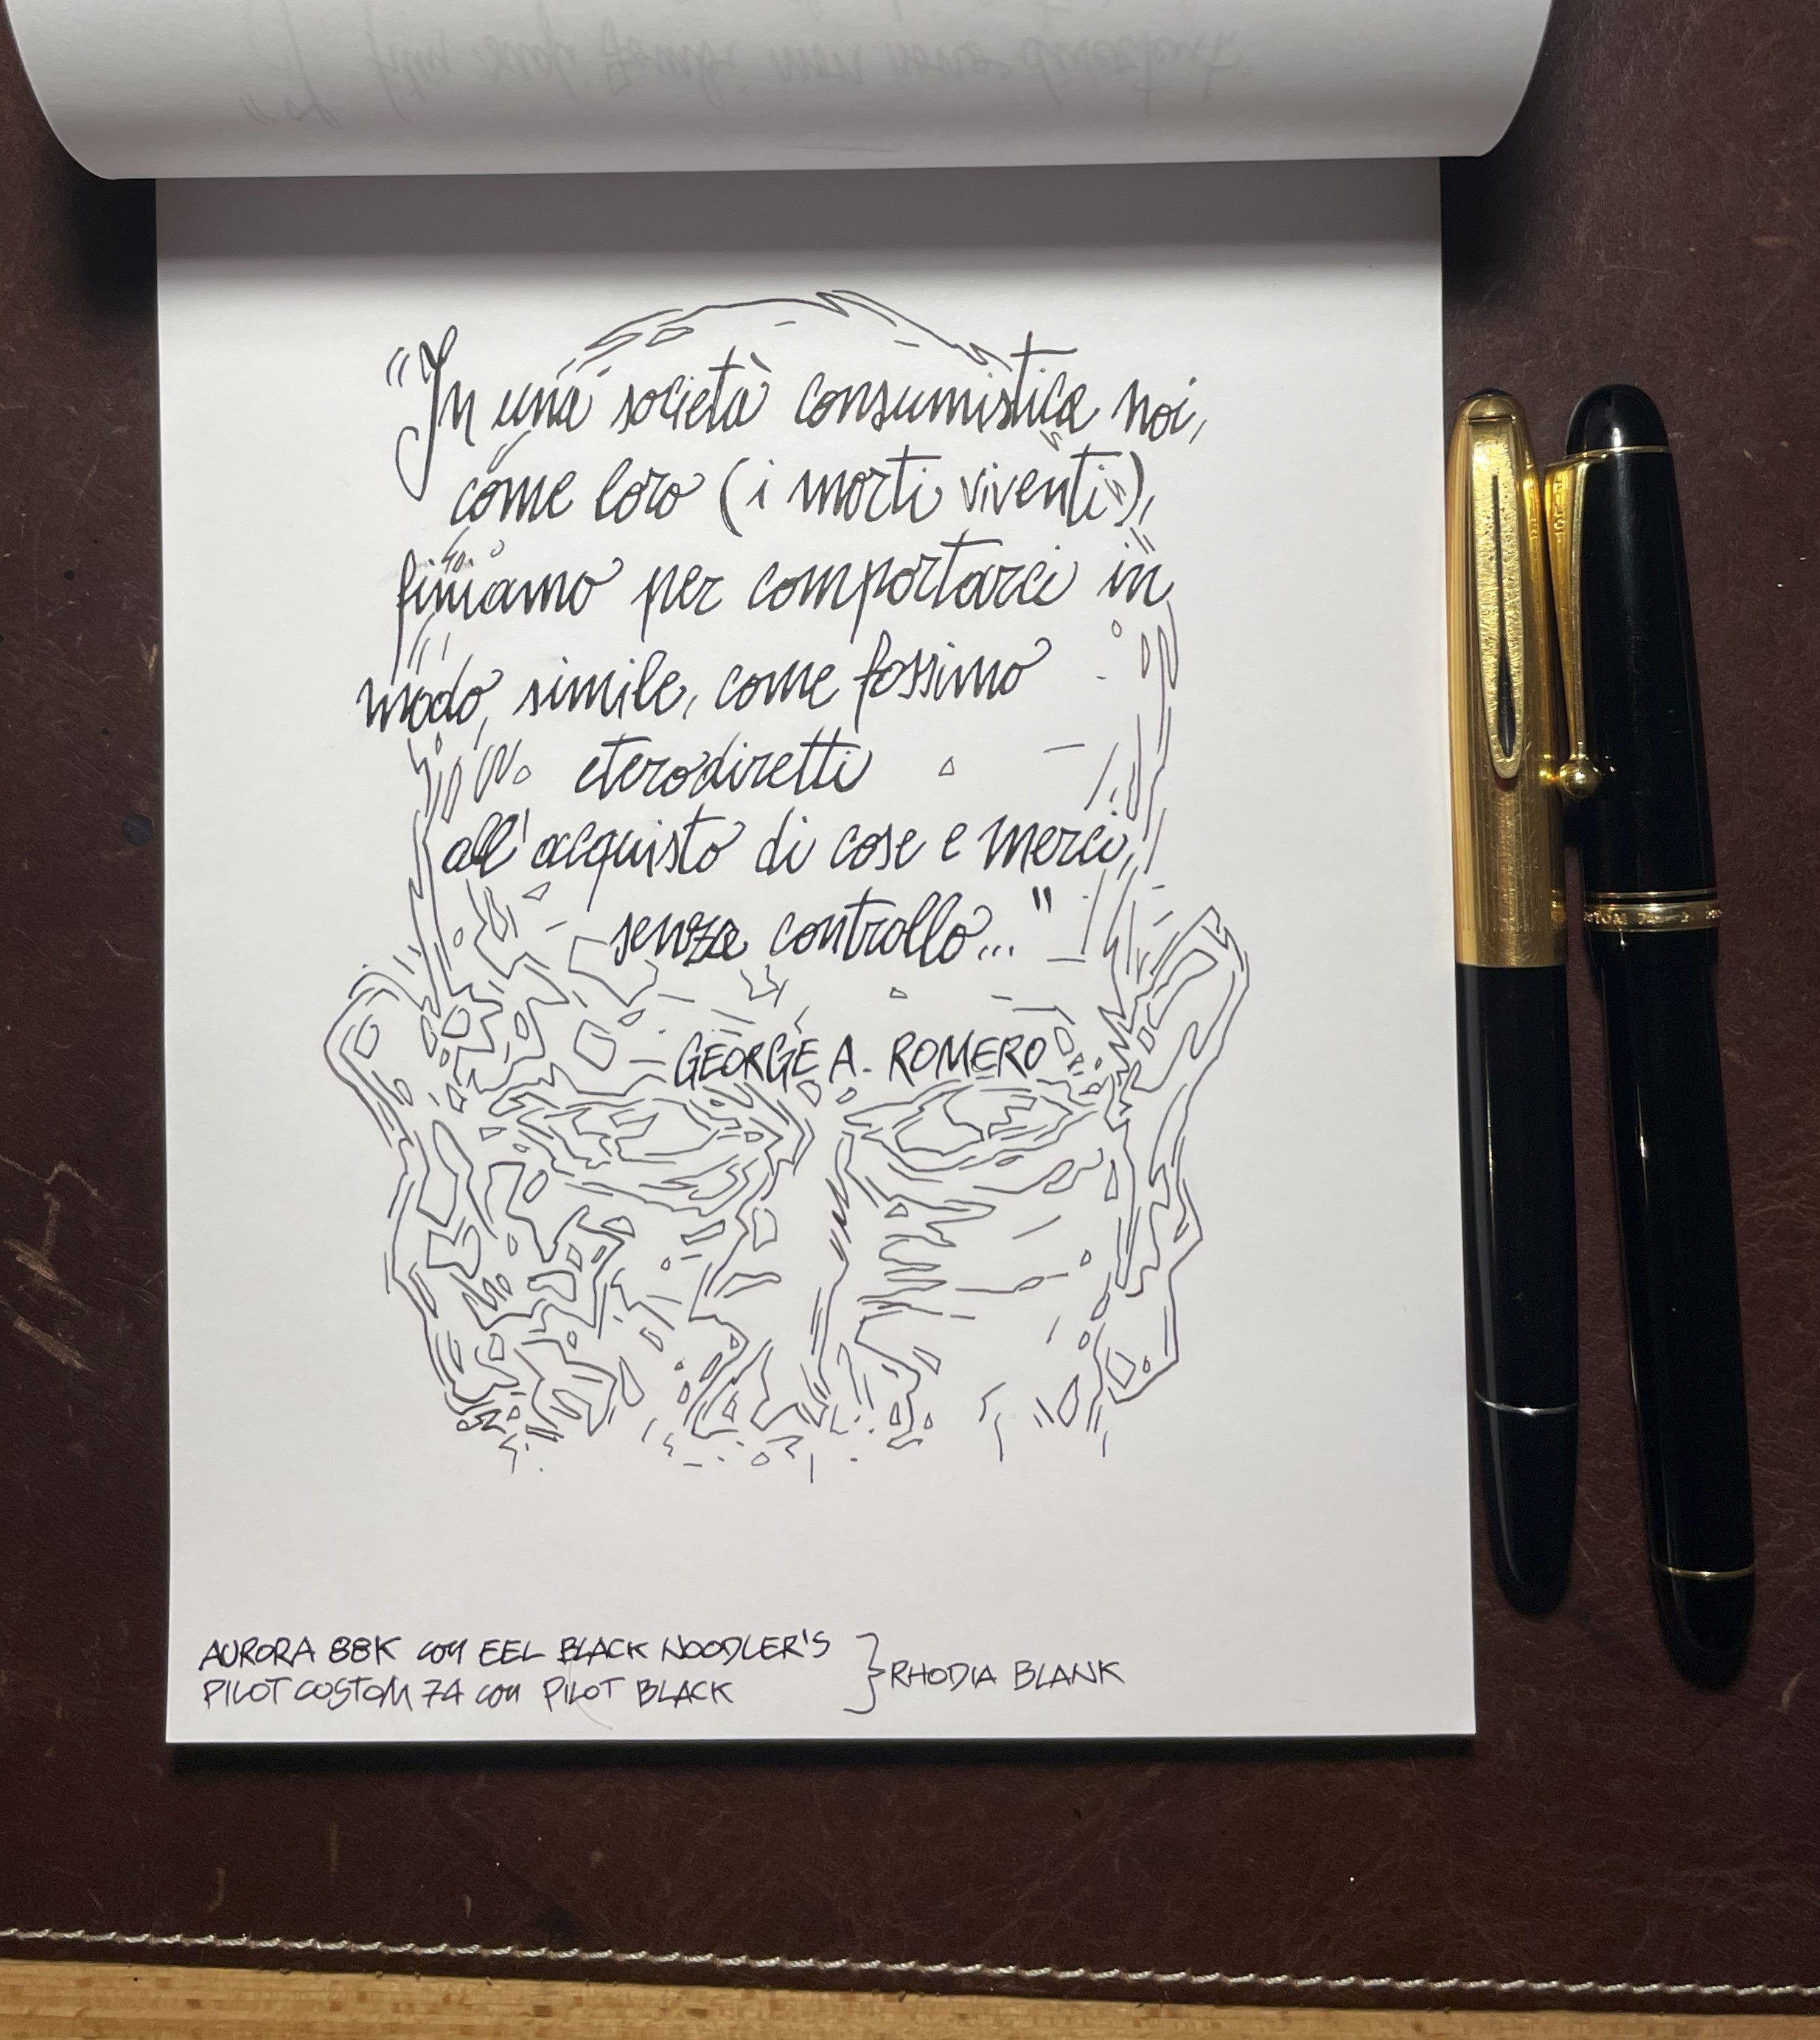 "In una società consumistica noi,
come loro (i morti viventi),
finiamo per comportarci in
modo, simile, come fossimo
eterodiretti
all'acquisto di cose e merci,
senza controllo..."
GEORGE A. ROMERO
AURORA 88K con EEL BLACK NOODLER'S
PILOT CUSTOM 74 con PILOT BLACK
} RHODIA BLANK